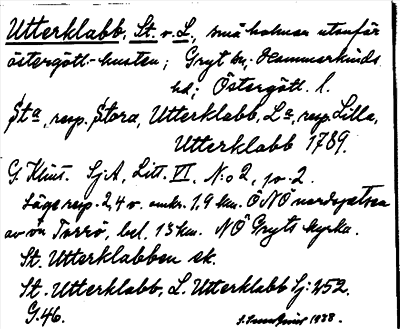 Utterklabb, St. o. L., små holmar utanför
östergött.-kusten; Gryt sn; Hammarkinds
hd; Östergötl. l.
St<sup>a</sup>, resp. Stora, Utterklabb, L<sup>a</sup>, resp. Lilla,
Utterklabb 1789.
G. Klint. Sj.A., Litt. VI. N:o 2, 2.
Läge resp. 2,4 o. omkr. 1,9 km. ÖNÖ nordspetsen
av ön Torrö, bel. 13 km. NÖ Gryts kyrka.
St. Utterklabben sk.
St. Utterklabb, L. Utterklabb Sj: 252.
G.46.
1938.